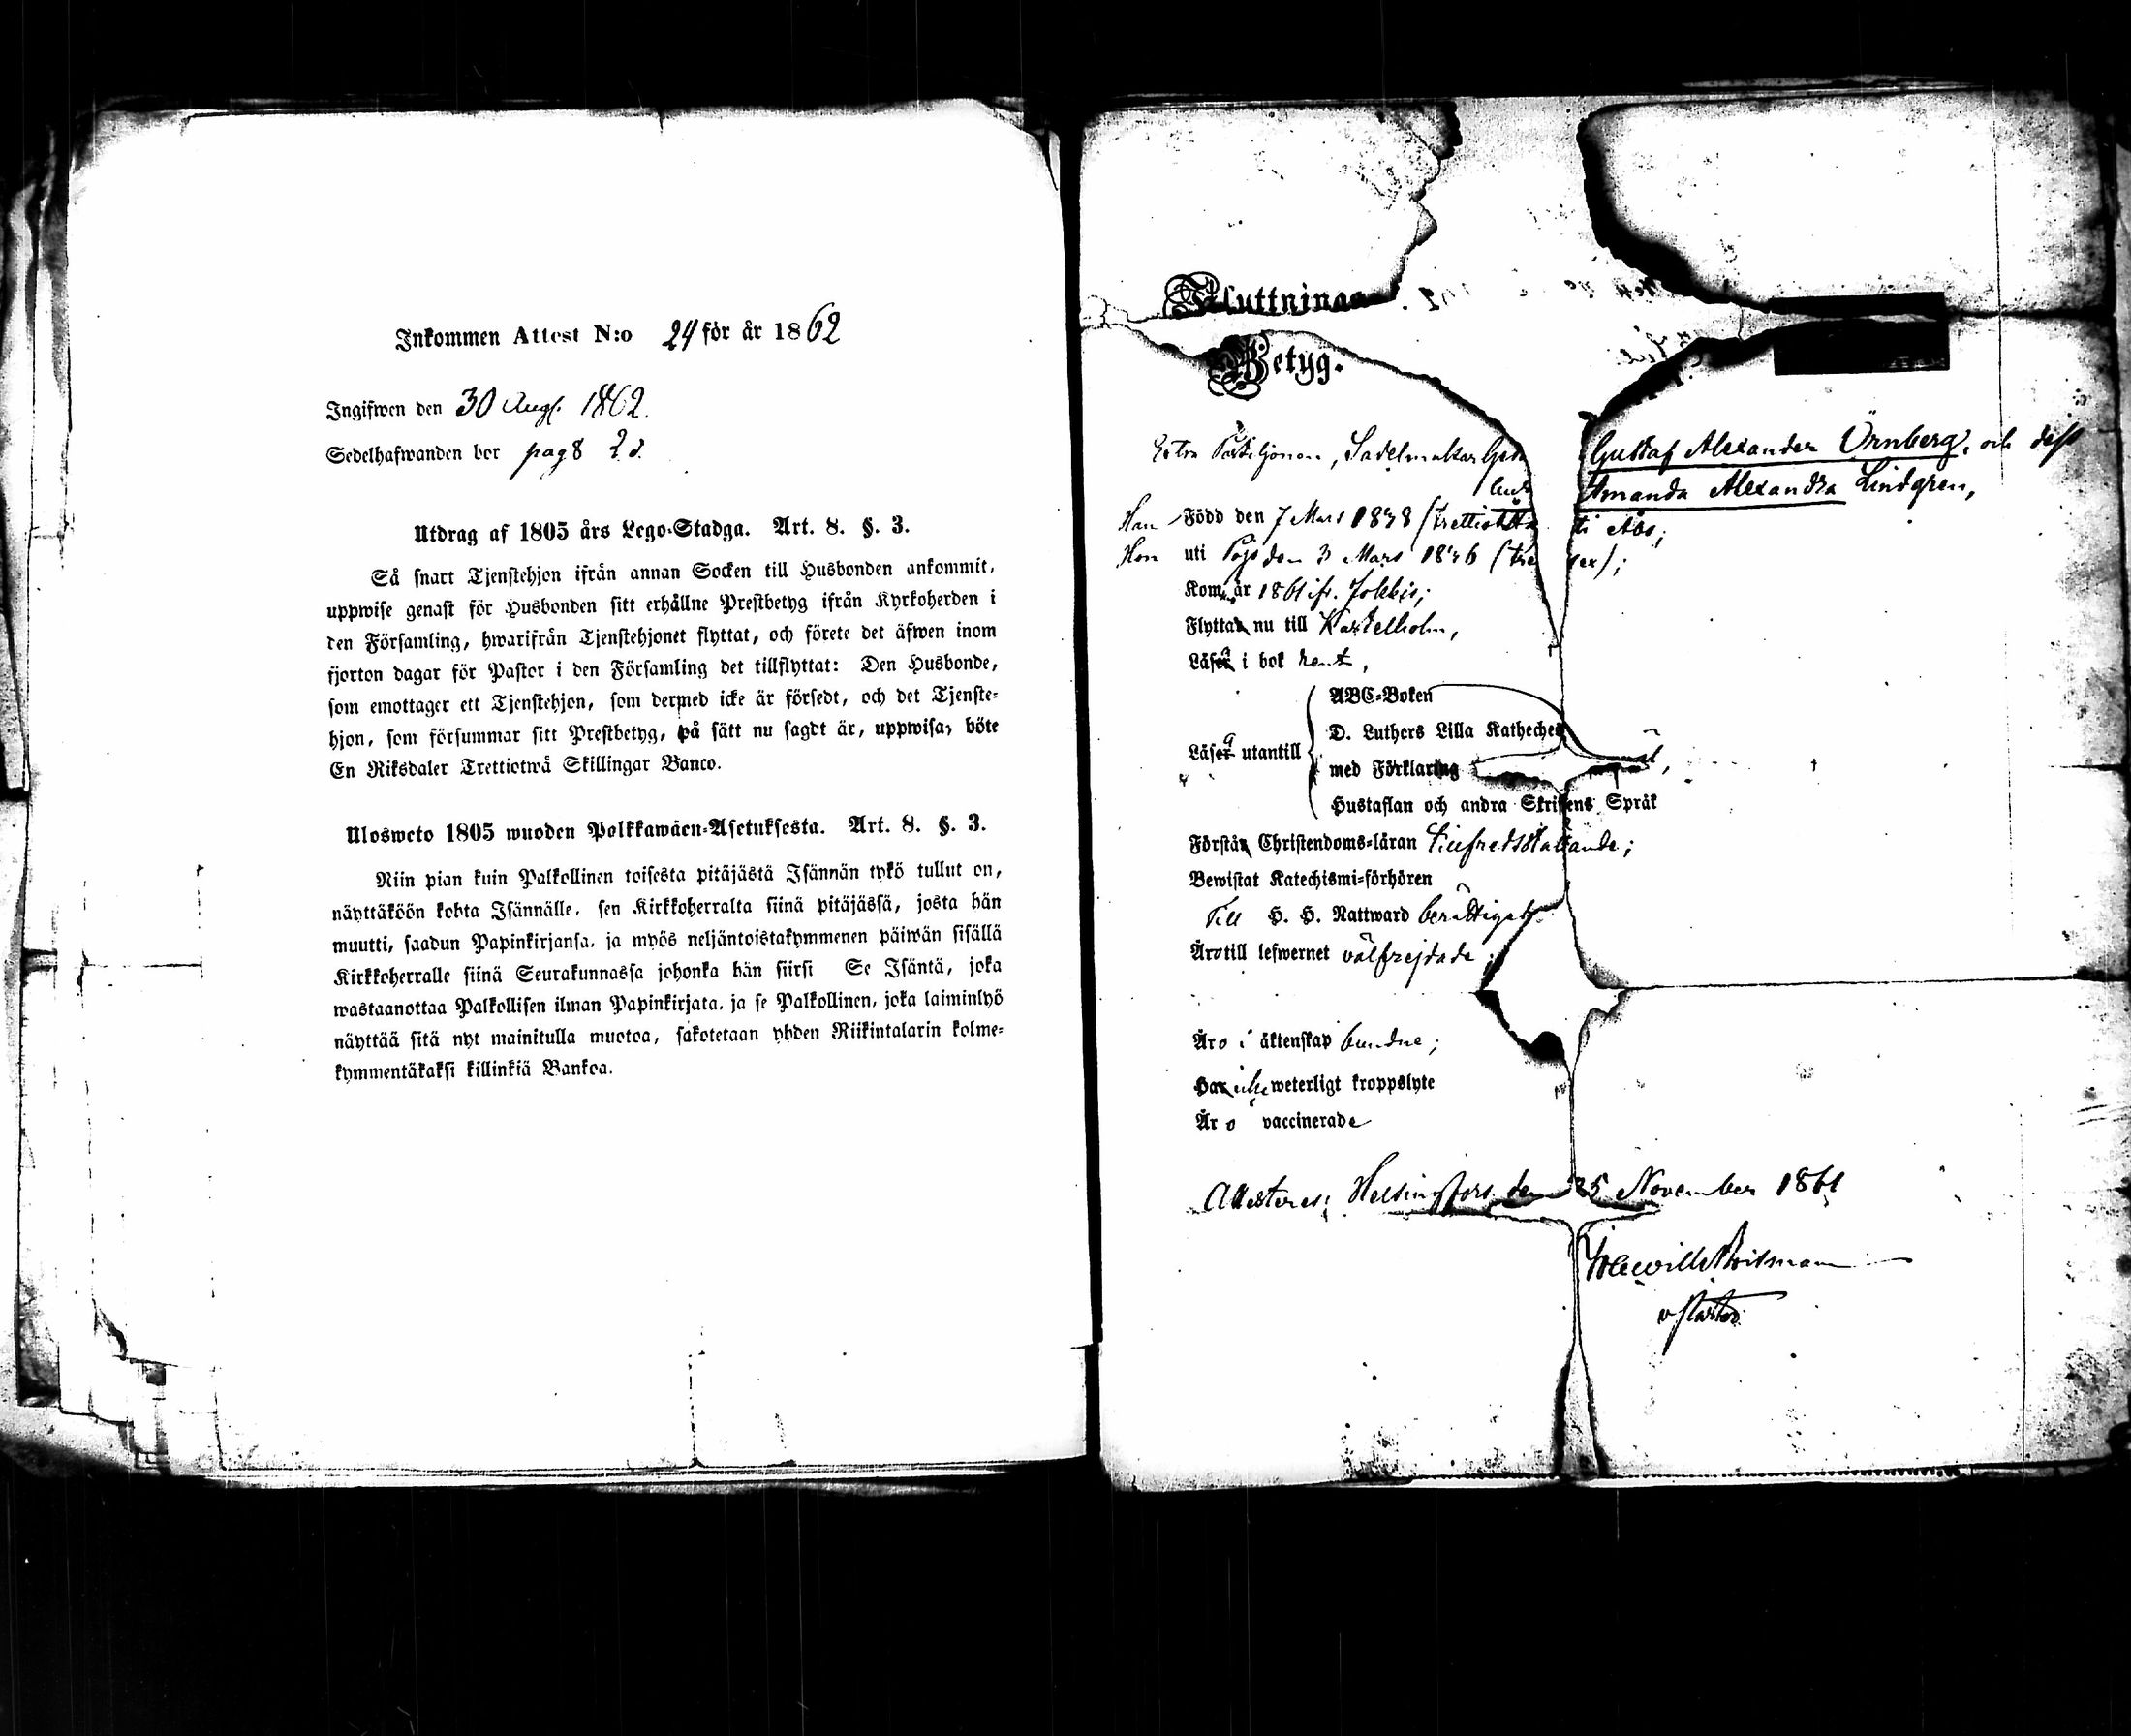 Inkommen Attest N:o 24 för år 1862
Ingifwen den 30 Aug. 1862.
Sedelhafwanden bor pag 8
Utdrag af 1805 års Lego-Stadga. Art. 8. §. 3.
Så snart Tjenstehjon ifrån annan Socken till Husbonden ankommit,
uppwise genast för Husbonden sitt erhållne Prestbetyg ifrån Kyrkoherden i
den Församling, hwarifrån Tjenstehjonet flyttat, och förete det äfwen inom
fjorton dagar för Pastor i den Församling det tillflyttat: Den Husbonde,
som emottager ett Tjenstehjon, som dermed icke är försedt, och det Tjenste-
hjon, som försummar sitt Prestbetyg, på sätt nu sagdt är, uppwisa, böte
En Riksdaler Trettiotwå Skillingar Banco.
Ulosweto 1805 wuoden Palkkawäen-Asetuksesta. Art. 8. §. 3.
Niin pian kuin Palkollinen toisesta pitäjästä Isännän tykö tullut on,
näyttäköön kohta Isännälle, sen Kirkkoherralta siinä pitäjässä, josta hän
muutti, saadun Papinkirjansa, ja myös neljäntoistakymmenen päiwän sisällä
Kirkkoherralle siinä Seurakunnassa johonka hän siirsi Se Isäntä, joka
wastaanottaa Palkollisen ilman Papinkirjata, ja se Palkollinen, joka laiminlyö
näyttää sitä nyt mainitulla muotoa, sakotetaan yhden Riikintalarin kolme-
kymmentäkaksi killinkiä Bankoa.
Flyttnings
Betyg.
Extra Postiljonen, Sadelmakar Gustaf Alexander Örnberg, och dess
Amanda Alexandra Lindgren,
Han Född den 7 Mars 1838 Åbo;
Hon uti Pojo den 3 Mars 1836
Kom år 1861 ifr. Jokkis;
Flytta nu till Kastelholm,
Läsa i bok rent,
ABC-Boken
D. Luthers Lilla Kateches
Läsa utantill
med Förklaring
Hustaflan och andra Skriftens Språk
Förstå Christendoms-läran tillfredsställande;
Bewistat Katechismi-förhören
Till H. H. Nattward berättigade
Äro till lefwernet välfrejdade;
Äro i äktenskap bundne;
Ha icke weterligt kroppslyte
Äro vaccinerade
Attesteres; Helsingfors den 25 November 1861
v Pastor